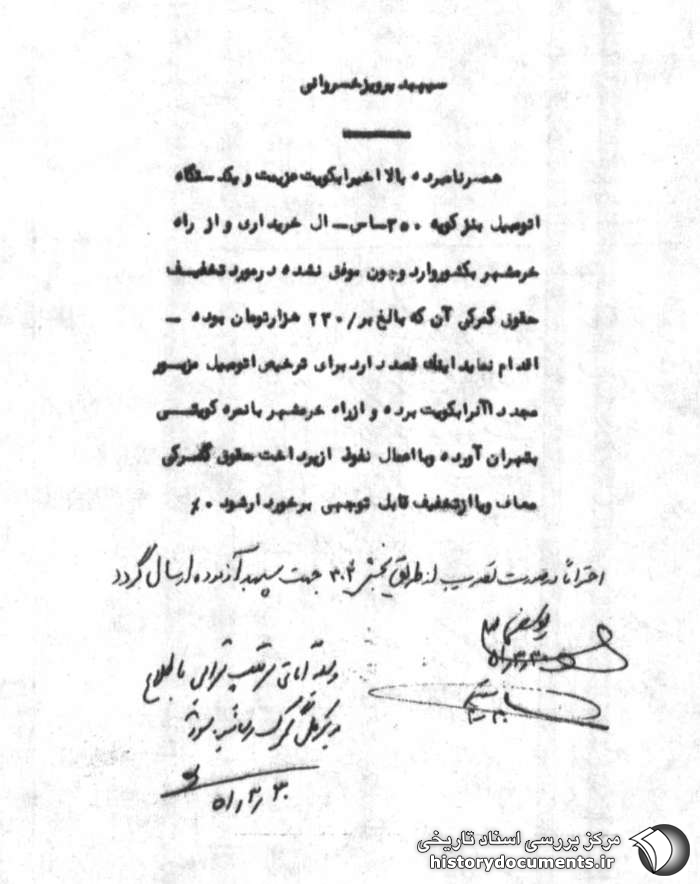 سپهبد پرویز خسروانی
همسر نامبرده بالا اخیرا بکویت عزیمت و یکدستگاه
اتومبیل بنز کوپه ۳۵۰ اس ـ ال خریداری و از راه
خرمشهر بکشور وارد و چون موفق نشده در مورد تخفیف
حقوق گمرکی آن که بالغ بر/۲۳۰ هزار تومان بوده ـ
اقدام نماید اینک قصد دارد برای ترخیص اتومبیل مزبور
مجدداً آنرا بکویت برده و از راه خرمشهر با نمره کویتی
بتهران آورده و با اعمال نفوذ از پرداخت حقوق گمرکی
معاف و یا از تخفیف قابل توجهی برخوردار شود ٠٪
احتراماً در صورت تصویب از طریق بخش ۳۰۲ جهت سپهبد آزموده ارسال گردد
۵۱٫۳٫۳۰
مدیر کل گمرک
۵۱٫۳٫۳۰
مرکز بررسی اسناد تاریخی
historydocuments.ir